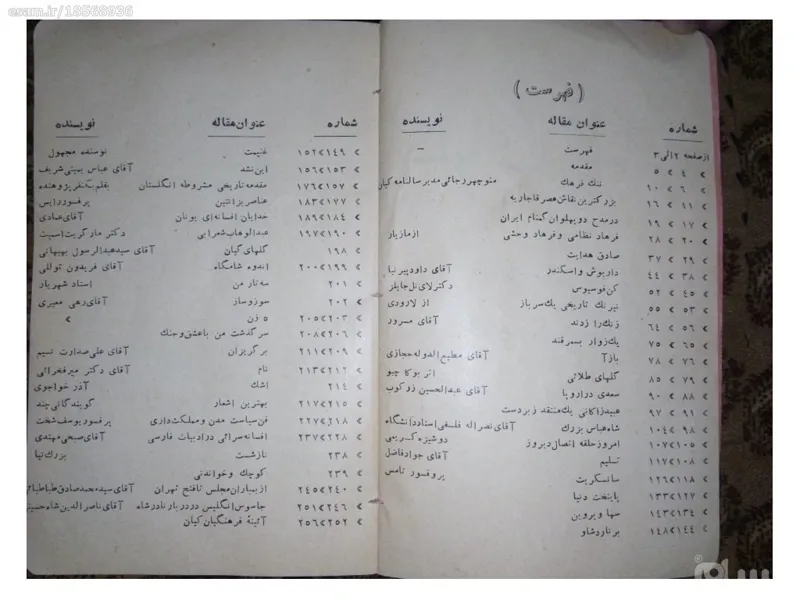 esam.ir/18568936
(فهرست)
شماره عنوان مقاله نویسنده
از صفحه ۲ الی ۳ فهرست —
> ۴ > ۵ مقدمه
> ۶ > ۱۰ ننگ فرهنگ منوچهر رجائی مدیر سالنامه کیان
> ۱۱ > ۱۶ بزرگترین نقاش عصر قاجاریه
> ۱۷ > ۱۹ در مدح دو پهلوان گمنام ایران
> ۲۰ > ۲۸ فرهاد نظامی و فرهاد وحشی از مازیار
> ۲۹ > ۳۷ صادق هدایت
> ۳۸ > ۴۴ داریوش و اسکندر آقای داود پیرنیا
> ۴۵ > ۵۲ کنفوسیوس دکتر لای نل جایلز
> ۵۳ > ۵۵ نیرنگ تاریخی یک سرباز از لارودی
> ۵۶ > ۶۴ زنگ را زدند آقای مسرور
> ۶۵ > ۷۵ یک زوار بسمرقند
> ۷۶ > ۷۸ باز آ آقای مطیع الدوله حجازی
> ۷۹ > ۸۵ گلهای طلائی اثر بوکاچیو
> ۸۸ > ۹۰ سعدی در اروپا آقای عبدالحسین زرکوب
> ۹۱ > ۹۷ عبید زاکانی یک منتقد زبردست
> ۹۸ > ۱۰۴ شاه عباس بزرگ آقای نصراله فلسفی استاد دانشگاه
> ۱۰۵ > ۱۰۷ امروز حلقه اتصال دیروز دوشیزه کریمی
> ۱۰۸ > ۱۱۷ تسلیم آقای جواد فاضل
> ۱۱۸ > ۱۲۶ سانسکریت پروفسور تامس
> ۱۲۷ > ۱۳۳ پایتخت دنیا
> ۱۳۴ > ۱۴۳ سها و پروین
> ۱۴۴ > ۱۴۸ برنارد شاو
شماره عنوان مقاله نویسنده
> ۱۴۹ > ۱۵۲ غنیمت نوسنده مجهول
> ۱۵۳ > ۱۵۶ این نشد آقای عباس بیبنی شریف
> ۱۵۷ > ۱۷۶ مقدمه تاریخی مشروطه انگلستان بقلم یکنفر پژوهنده
> ۱۷۷ > ۱۸۳ عناصر پرفسور رایس
> ۱۸۴ > ۱۸۹ خدایان افسانه ای یونان آقای عمادی
> ۱۹۰ > ۱۹۷ عبدالوهاب شعرابی دکتر مارگریت اسمیت
> ۱۹۸ گلهای گیان آقای سید عبدالرسول بهبهانی
> ۱۹۹ > ۲۰۰ اندوه شامگاه آقای فریدون توللی
> ۲۰۱ سه تار من استاد شهریار
> ۲۰۲ سوز و ساز آقای رهی معیری
> ۲۰۳ > ۲۰۵ ۵ زن >
> ۲۰۶ > ۲۰۸ سرگذشت من با عشق و جنگ
> ۲۰۹ > ۲۱۱ برگریزان آقای علی صدارت نسیم
> ۲۱۲ > ۲۱۳ نام آقای دکتر میرفخرائی
> ۲۱۴ اشک آذر خواجوی
> ۲۱۵ > ۲۱۷ بهترین اشعار گویندگانی چند
> ۲۱۸ > ۲۲۷ فن سیاست مدن و مملکت داری پرفسور یوسف شخت
> ۲۲۸ > ۲۳۷ افسانه سرائی در ادبیات فارسی آقای صبحی مهتدی
> ۲۳۸ نازشست بزرگ نیا
> ۲۳۹ کوچک و خواندنی
> ۲۴۰ > ۲۴۵ از بمباران مجلس تا فتح تهران آقای سید محمد صادق طباطبائی
> ۲۴۶ > ۲۵۱ جاسوس انگلیس در دربار نادر شاه آقای ناصر الدین شاه حسینی
> ۲۵۲ > ۲۵۶ آئینهٔ فرهنگیان کیان